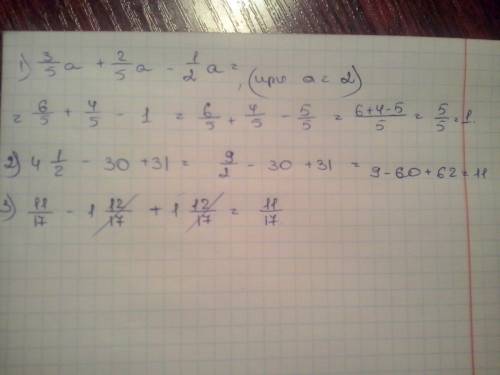 1) 3/5 a + 2/5 a - 1/2 a =, (при a = 2)
= 6/5 + 4/5 - 1 = 6/5 + 4/5 - 5/5 = (6+4-5)/5 = 5/5 = 1.
2) 4 1/2 - 30 + 31 = 9/2 - 30 + 31 = 9 - 60 + 62 = 11
3) 11/17 - 1 12/17 + 1 12/17 = 11/17